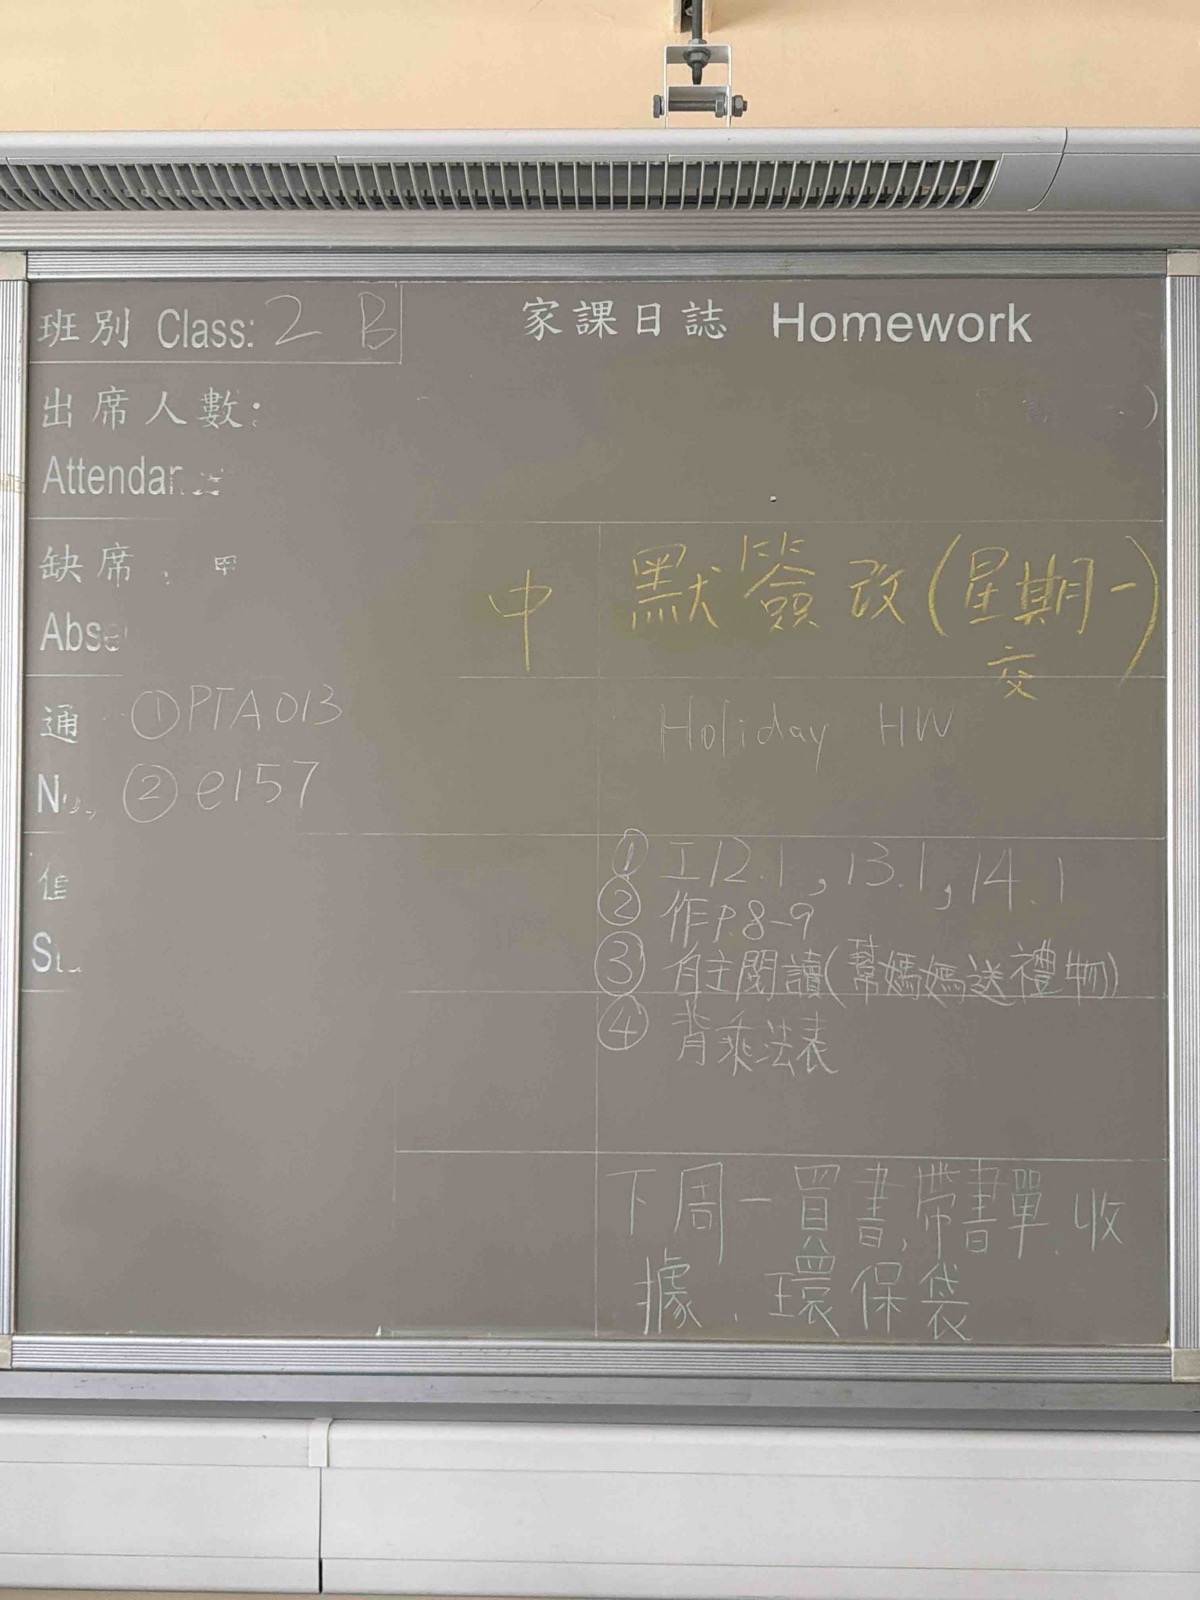 班別 Class: 2 B
家課日誌 Homework
出席人數:
Attendan
缺席
Abse
中 默簽改(星期一)
交
通 ①PTA013
② e157
Holiday HW
① 工12.1, 13.1, 14.1
② 作P.8-9
③ 自主閱讀(幫媽媽送禮物)
④ 背乘法表
下周一買書,帶書單、收
據、環保袋